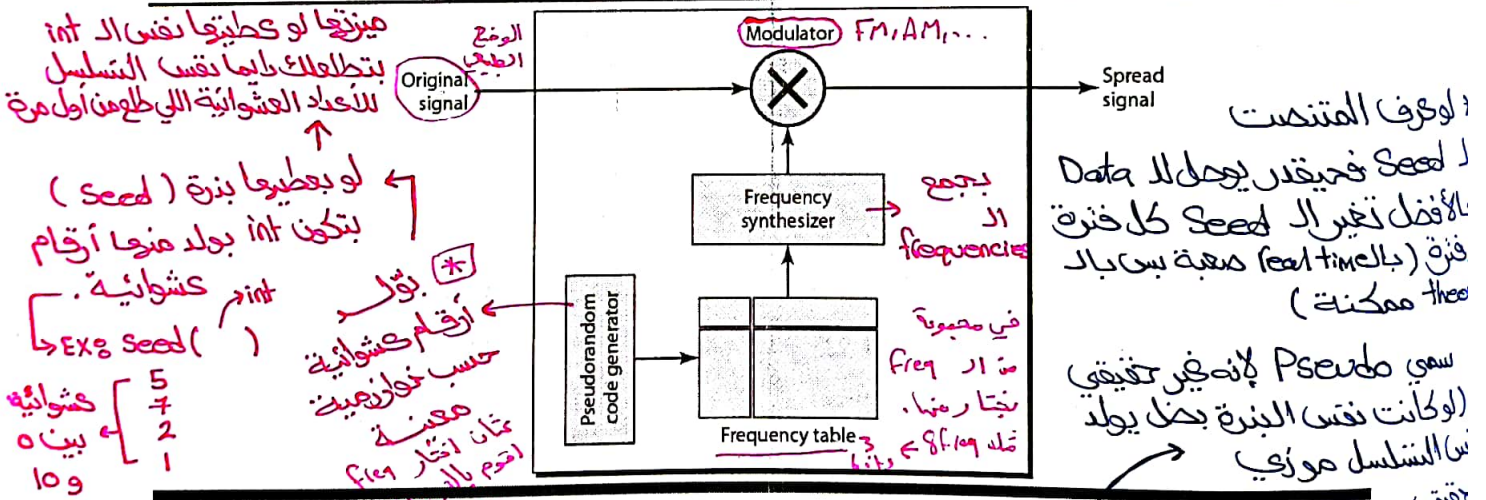 ميزتها لو عطيتها نفس الـ int
بتطلعلك دايما نفس التسلسل
للأعداد العشوائية اللي طلع من أول مرة
لو بعطيها بذرة (Seed)
بتكون int بولد منها أرقام
عشوائية.
int
EX: Seed( )
5
7
2
1
عشوائية
بين 0
و 10
* بولد
أرقام عشوائية
حسب خوارزمية
معينة
عشان اختار freq
اقوم بالـ
الوضع
الطبيعي
Original
signal
Modulator FM, AM, ...
Spread
signal
Frequency
synthesizer
بجمع
الـ
frequencies
Pseudorandom
code generator
Frequency table
في مجموعة
من الـ freq
بختار منها.
مثلا 8 freq → 3 bits
لو عرف المتنصت
الـ Seed فحيقدر يوصل للـ Data
فالأفضل تغير الـ Seed كل فترة
فترة (بالـ real time صعبة بس بالـ
ممكنة)
سمي Pseudo لإنه غير حقيقي
(لو كانت نفس البذرة بضل يولد
نفس التسلسل مو زي